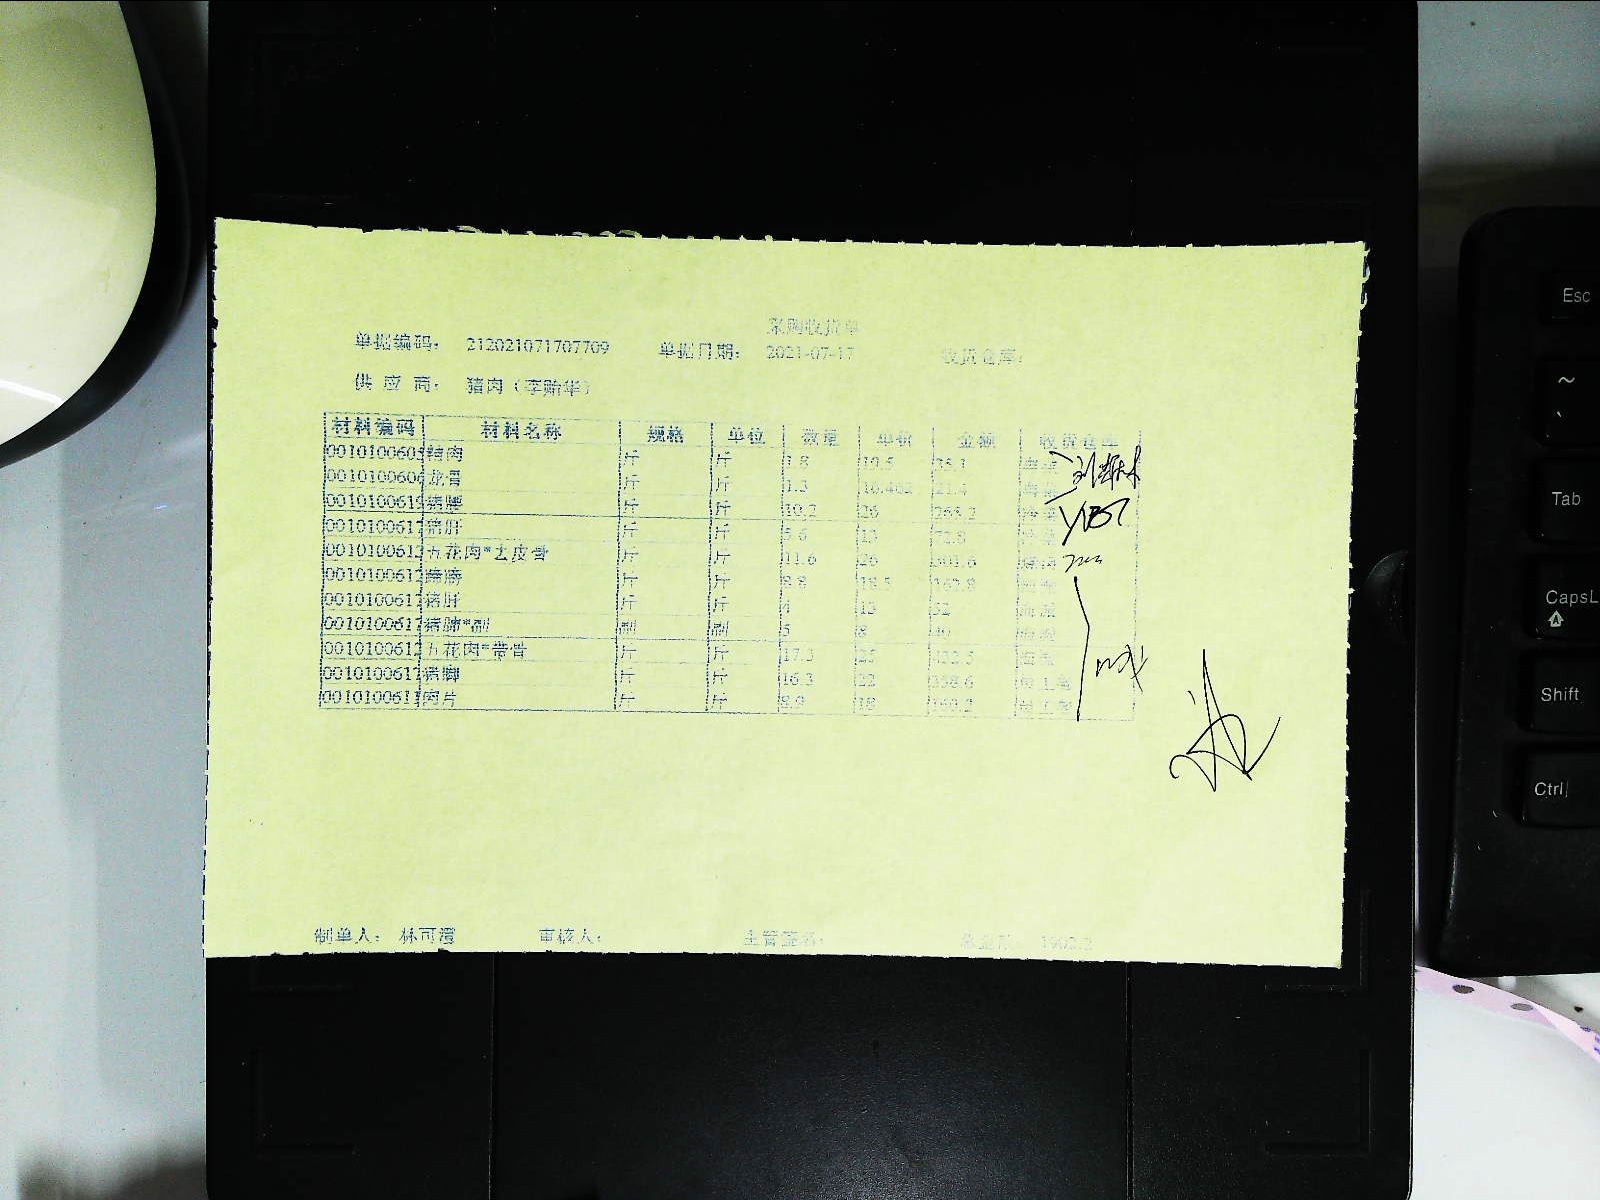 采购收货单
单据编码： 212021071707709 单据日期： 2021-07-17 收货仓库：
供 应 商： 猪肉（李贻华）
材料编码 材料名称 规格 单位 数量 单价 金额 收货仓库
0010100605 精肉 斤 斤 1.8 19.5 35.1
0010100606 龙骨 斤 斤 1.3 16.462 21.4
0010100619 猪腰 斤 斤 10.2 26 265.2
0010100617 猪肝 斤 斤 5.6 13 72.8
0010100612 五花肉*去皮骨 斤 斤 11.6 26 301.6
0010100612 蹄膀 斤 斤 8.8 18.5 162.8
0010100617 猪肝 斤 斤 4 13 52
0010100617 猪肺*副 副 副 5 8 40
0010100612 五花肉*带骨 斤 斤 17.3 25 432.5
0010100617 猪脚 斤 斤 16.3 22 358.6
0010100611 肉片 斤 斤 8.9 18 160.2
制单人： 林可清 审核人： 主管签名： 总金额： 1902.2
Esc
~
`
Tab
CapsL
Shift
Ctrl